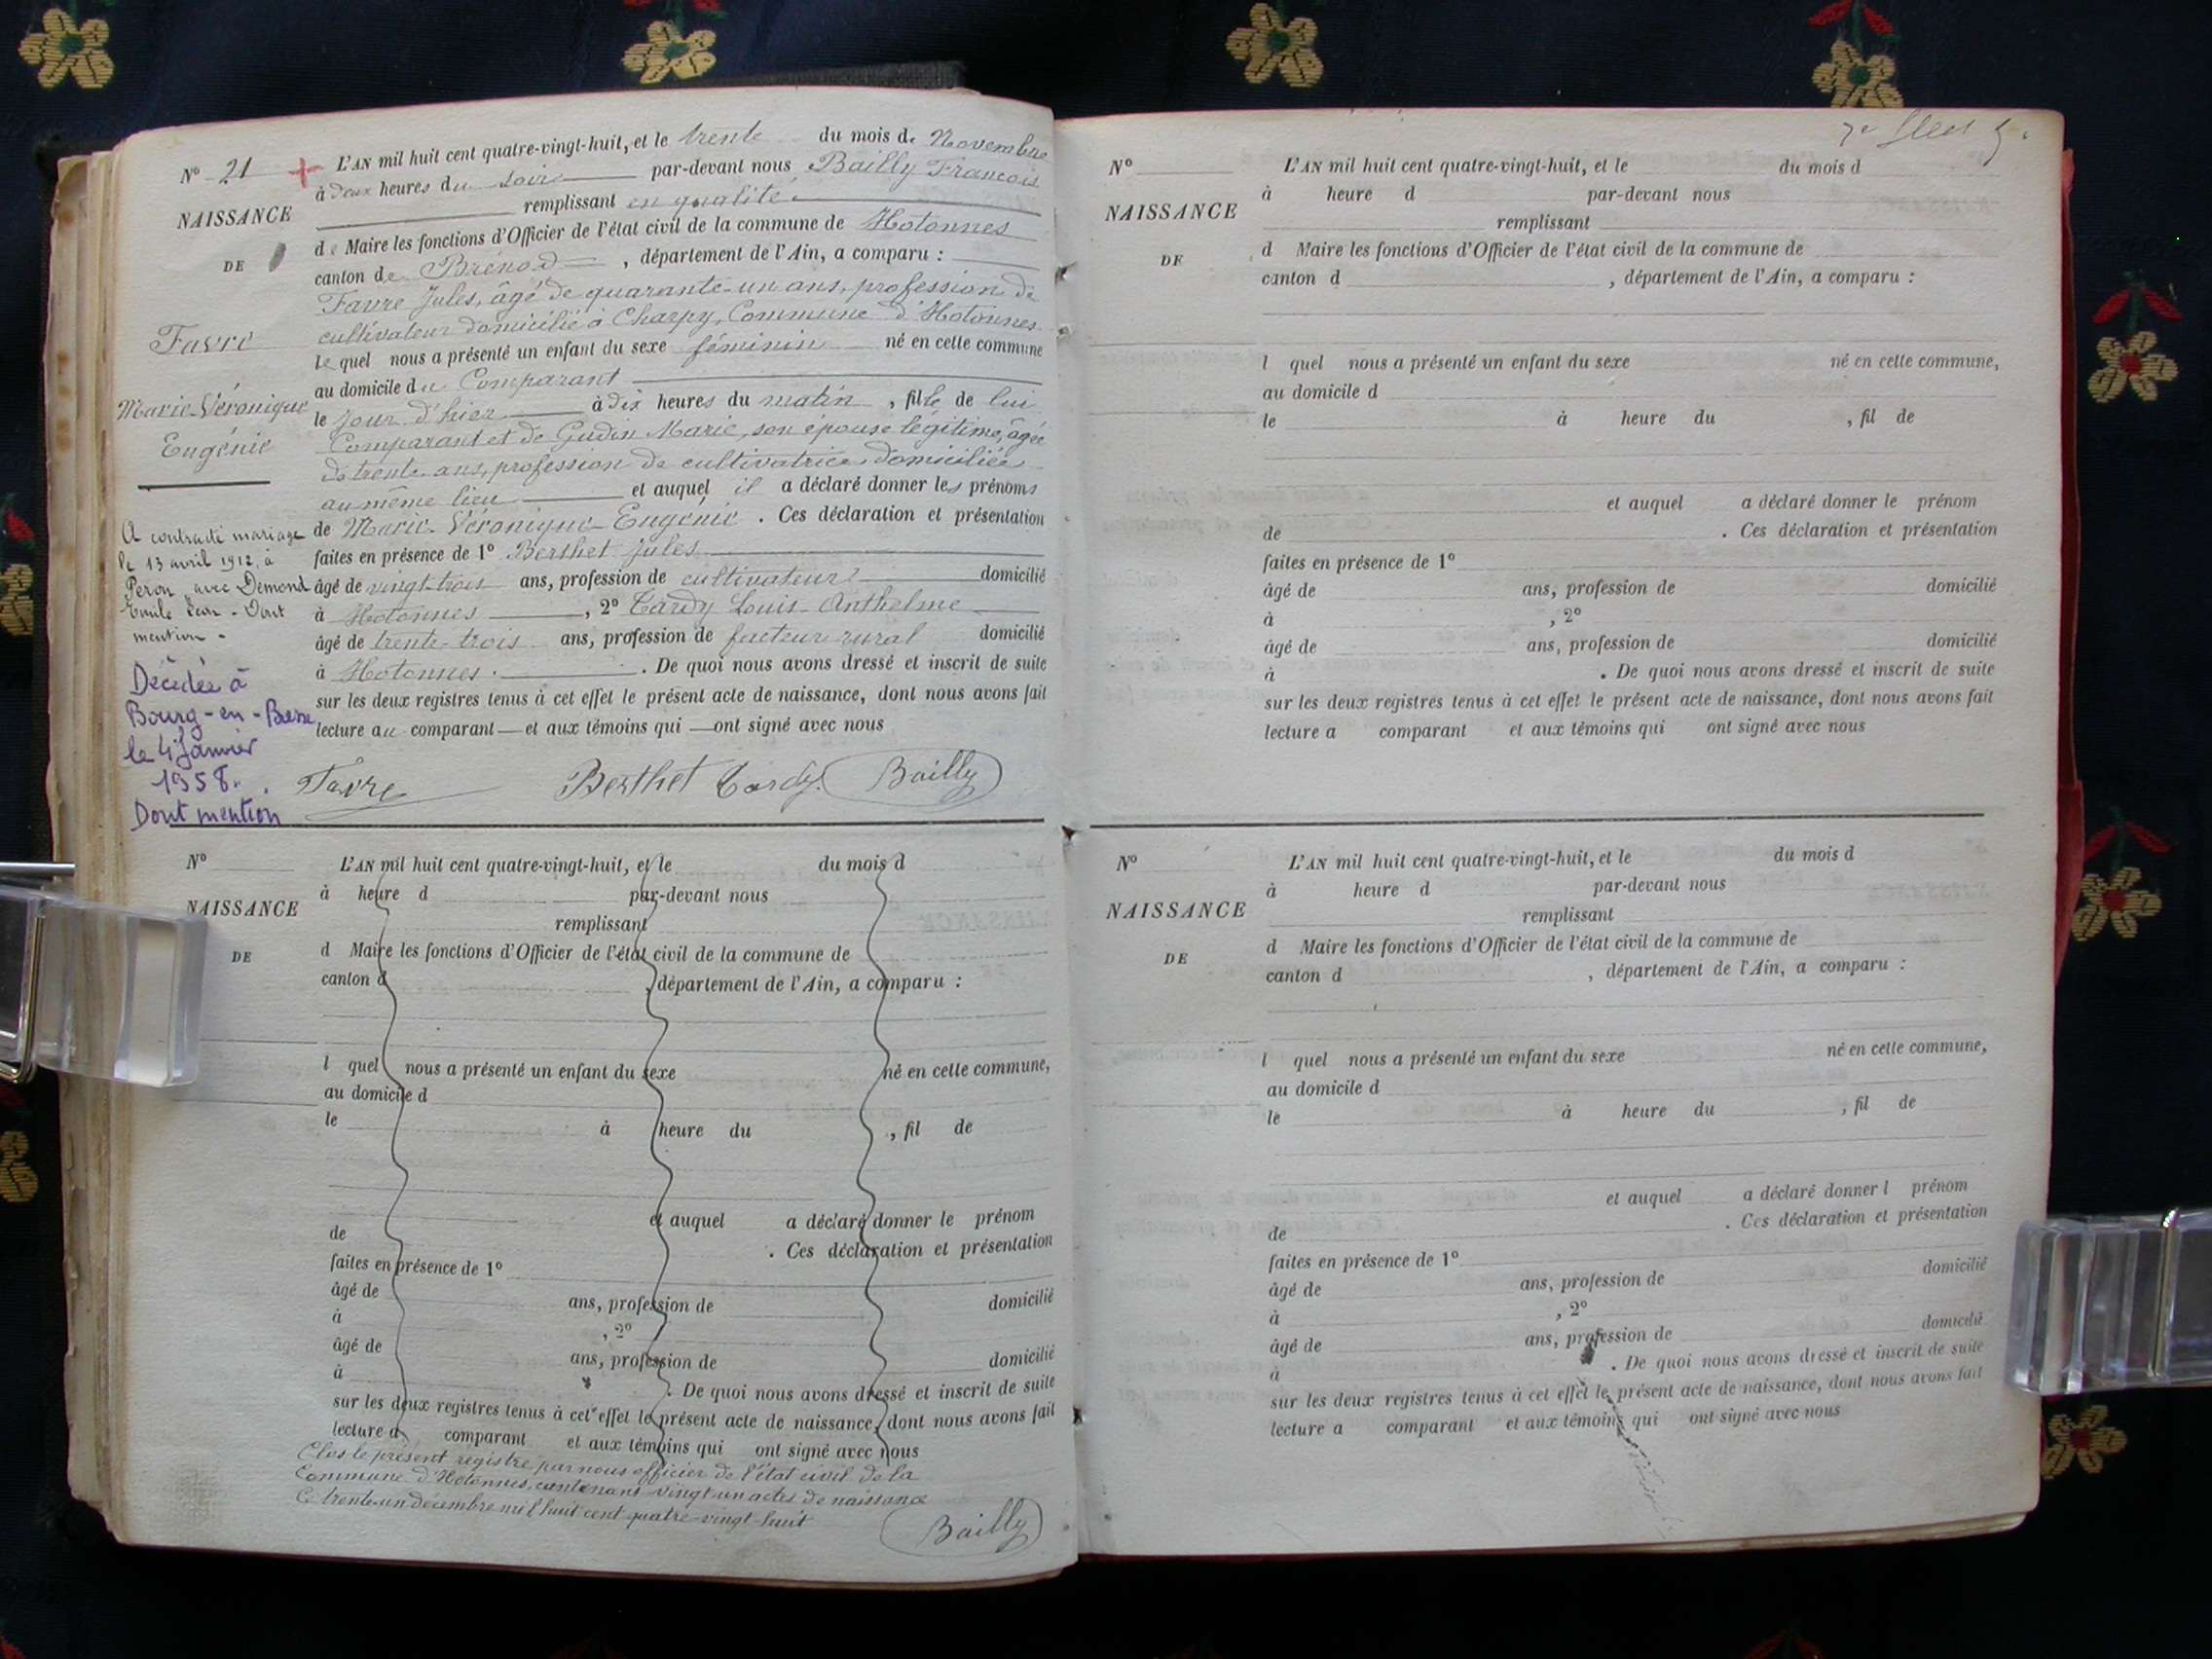 N° 21
NAISSANCE
DE
Favre
Marie-Véronique
Eugénie
A contracté mariage
le 13 avril 1912, à
Peron avec Demond
Emile Jean - Dont
mention -
Décédée à
Bourg-en-Bresse
le 4 Janvier
1958.
Dont mention
L'AN mil huit cent quatre-vingt-huit, et le trente du mois de Novembre
à deux heures du soir par-devant nous Bailly François
remplissant en qualité
de Maire les fonctions d'Officier de l'état civil de la commune de Hotonnes
canton de Brénod, département de l'Ain, a comparu :
Favre Jules, âgé de quarante-un ans, profession de
cultivateur domicilié à Charpy, Commune d'Hotonnes
Lequel nous a présenté un enfant du sexe féminin né en cette commune
au domicile du Comparant
le jour d'hier à dix heures du matin, fille de lui
Comparant et de Gudin Marie, son épouse légitime, âgée
de trente ans, profession de cultivatrice domiciliée
au même lieu et auquel il a déclaré donner les prénoms
de Marie-Véronique-Eugénie. Ces déclaration et présentation
faites en présence de 1° Berthet Jules
âgé de vingt-trois ans, profession de cultivateur domicilié
à Hotonnes, 2° Tardy Louis-Anthelme
âgé de trente-trois ans, profession de facteur rural domicilié
à Hotonnes. De quoi nous avons dressé et inscrit de suite
sur les deux registres tenus à cet effet le présent acte de naissance, dont nous avons fait
lecture au comparant et aux témoins qui ont signé avec nous
Favre Berthet Tardy Bailly
N°
NAISSANCE
DE
L'AN mil huit cent quatre-vingt-huit, et le du mois d
à heure d par-devant nous
remplissant
d Maire les fonctions d'Officier de l'état civil de la commune de
canton d , département de l'Ain, a comparu :
l quel nous a présenté un enfant du sexe né en cette commune,
au domicile d
le à heure du , fil de
et auquel a déclaré donner le prénom
de . Ces déclaration et présentation
faites en présence de 1°
âgé de ans, profession de domicilié
à , 2°
âgé de ans, profession de domicilié
à . De quoi nous avons dressé et inscrit de suite
sur les deux registres tenus à cet effet le présent acte de naissance, dont nous avons fait
lecture a comparant et aux témoins qui ont signé avec nous
Clos le présent registre par nous officier de l'état civil de la
Commune d'Hotonnes, contenant vingt un actes de naissance
Ce trente-un décembre mil huit cent quatre-vingt-huit
Bailly
N°
NAISSANCE
DE
L'AN mil huit cent quatre-vingt-huit, et le du mois d
à heure d par-devant nous
remplissant
d Maire les fonctions d'Officier de l'état civil de la commune de
canton d , département de l'Ain, a comparu :
l quel nous a présenté un enfant du sexe né en cette commune,
au domicile d
le à heure du , fil de
et auquel a déclaré donner le prénom
de . Ces déclaration et présentation
faites en présence de 1°
âgé de ans, profession de domicilié
à , 2°
âgé de ans, profession de domicilié
à . De quoi nous avons dressé et inscrit de suite
sur les deux registres tenus à cet effet le présent acte de naissance, dont nous avons fait
lecture a comparant et aux témoins qui ont signé avec nous
N°
NAISSANCE
DE
L'AN mil huit cent quatre-vingt-huit, et le du mois d
à heure d par-devant nous
remplissant
d Maire les fonctions d'Officier de l'état civil de la commune de
canton d , département de l'Ain, a comparu :
l quel nous a présenté un enfant du sexe né en cette commune,
au domicile d
le à heure du , fil de
et auquel a déclaré donner l prénom
de . Ces déclaration et présentation
faites en présence de 1°
âgé de ans, profession de domicilié
à , 2°
âgé de ans, profession de domicilié
à . De quoi nous avons dressé et inscrit de suite
sur les deux registres tenus à cet effet le présent acte de naissance, dont nous avons fait
lecture a comparant et aux témoins qui ont signé avec nous